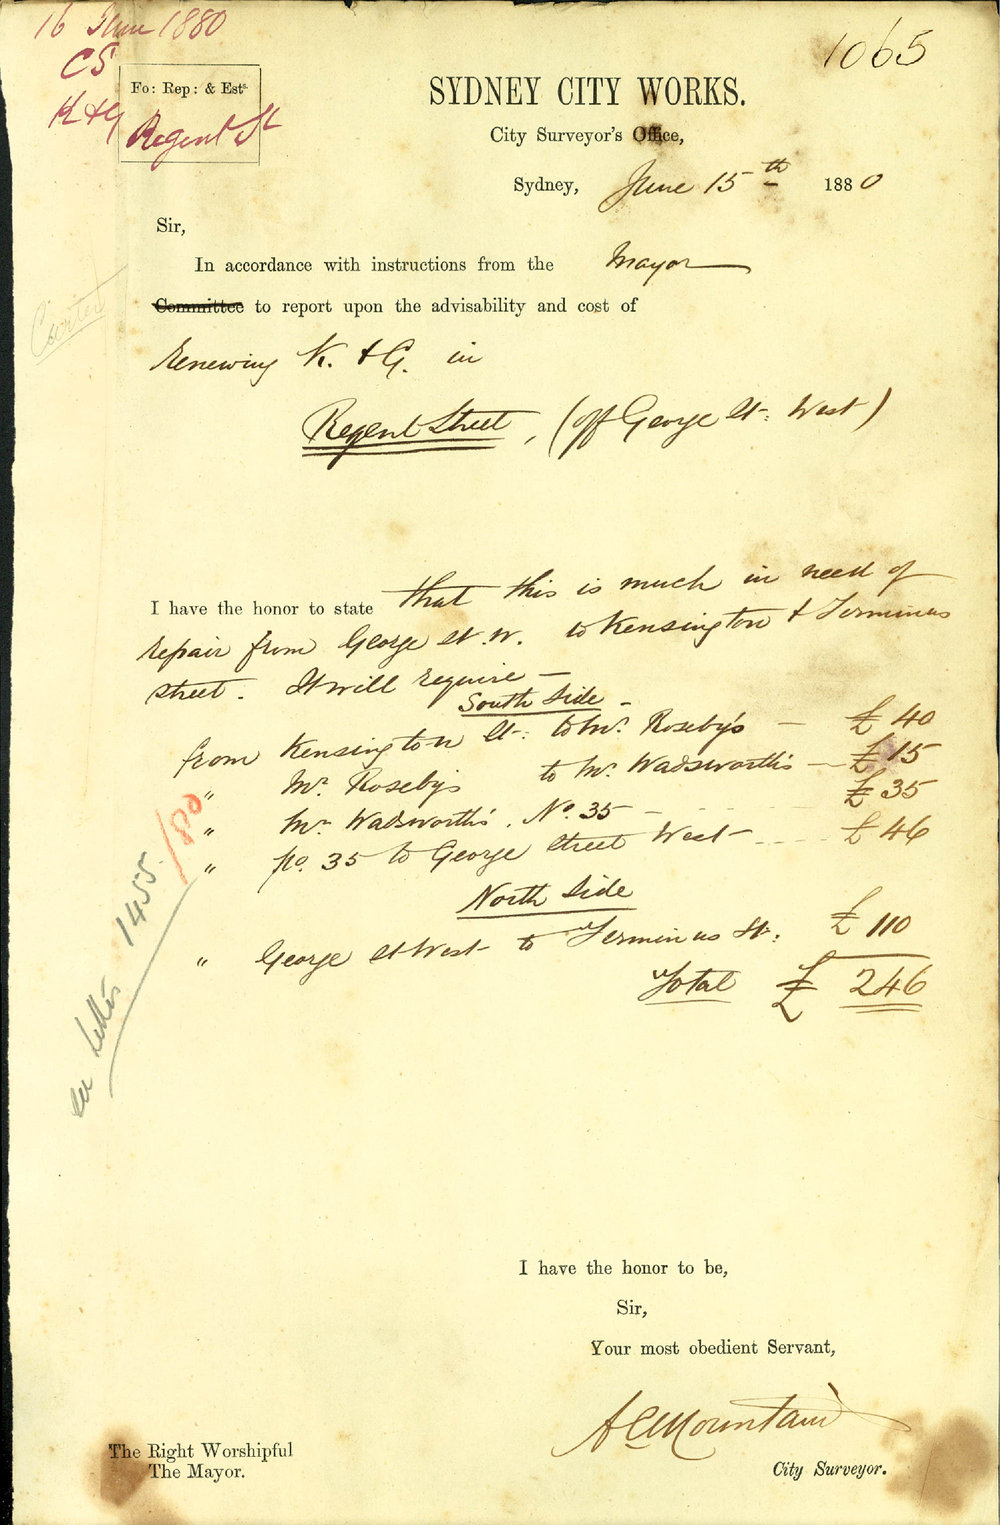 16 June 1880
CS
K & G
Fo: Rep: & Ests.
Regent St
1065
SYDNEY CITY WORKS.
City Surveyor's Office,
Sydney, June 15th 1880
Sir,
In accordance with instructions from the Mayor
Committee to report upon the advisability and cost of
renewing K. & G. in
Regent Street, (off George St: West)
I have the honor to state that this is much in need of
repair from George St. W. to Kensington & Terminus
street. It will require -
South Side -
from Kensington St: to Mr. Roseby's - £ 40
" Mr. Roseby's to Mr. Wadsworth's - £ 15
" Mr. Wadsworth's. No. 35 - £ 35
" No. 35 to George Street West - £ 46
North Side
" George St West to Terminus St: £ 110
Total £ 246
Letter 1455/80
I have the honor to be,
Sir,
Your most obedient Servant,
A C Mountain
City Surveyor.
The Right Worshipful
The Mayor.